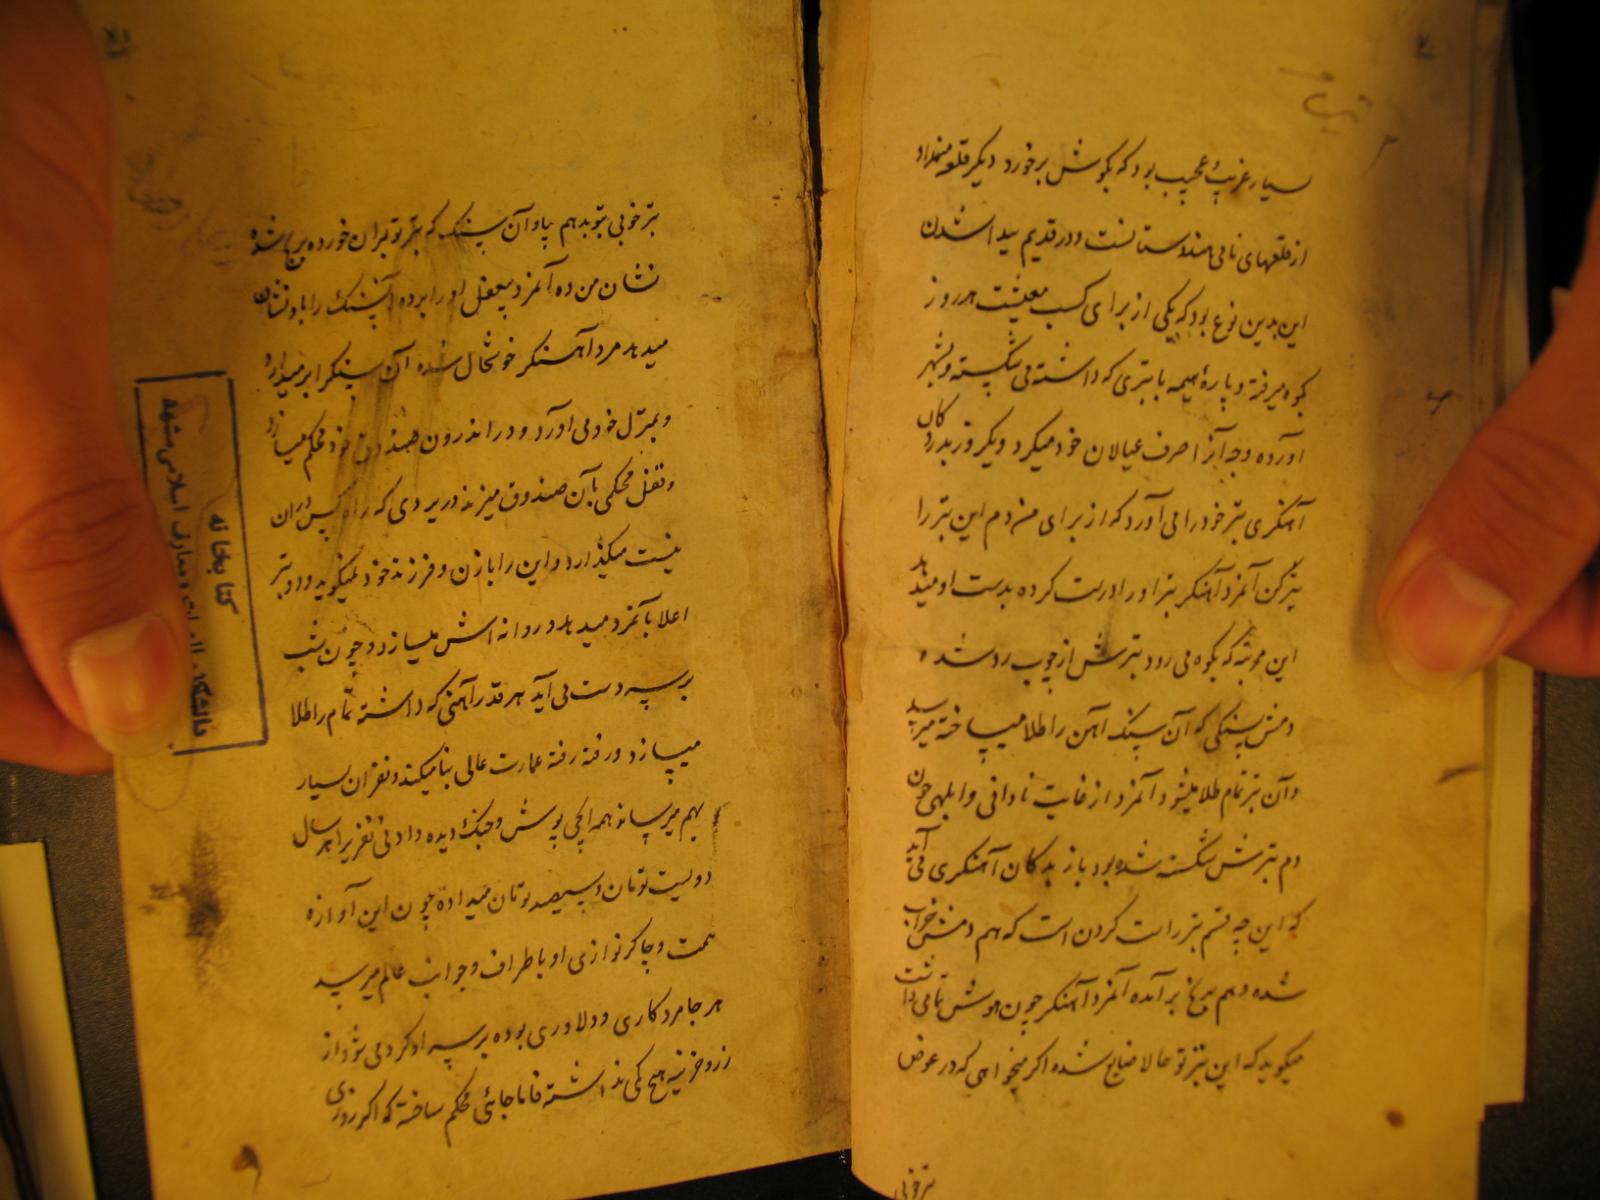 بسیار غریب و عجیب بود که بگوش برخورد دیگر قلعه
از قلعهای نامی هندوستانست و در قدیم پیدا شدن
این بدین نوع بود که یکی از برای کسب معیشت هر روز
بکوه میرفته و پارهٔ هیمه با تبری که داشته می شکسته و بشهر
آورده وجه آنرا صرف عیالان خود میکرد و یکروز بدر دکان
آهنگری تبر خود را می آورد که از برای من دم این تبر را
تیز کن آنمرد آهنگر تبر او را درست کرده بدست او میدهد
این مرتبه که بکوه می رود تبرش از چوب رد شده
دمش بسنگی که آن سنگ آهن را طلا میساخته میرسد
و آن تبر تمام طلا میشود آنمرد از غایت نادانی و ابلهی چون
دم تبرش شکسته شده بود باز بدکان آهنگری می آید
که این چه قسم تبر راست کردن است که هم دمش خراب
شده و هم برنگ بر آمده آنمرد آهنگر چون هوش تمامی داشت
میگوید که این تبر تو حالا ضایع شده اگر میخواهی که در عوض
تبر خوبی
تبر خوبی بتو بدهم بیا و آن سنگ که تبر تو بران خورده برنگ شده
نشان من ده آنمرد بیعقل او را برده آن سنگ را باو نشان
میدهد مرد آهنگر خوشحال شده آن سنگ را بر میدارد
و بمنزل خود می آورد و در اندرون صندوق خود محکم میسازد
و قفل محکمی بآن صندوق میزند در پردی که راه کس دران
نیست میگذارد و این را با زن و فرزند خود نمیگوید و دو تبر
اعلا بآنمرد میدهد و روانه اش میسازد و چون شب
بر سر دست می آید هر قدر آهنی که داشته تمام را طلا
میسازد و رفته رفته عمارت عالی بنا میکند و نفران بسیار
بهم میرساند همه ایچی پوش و جنگ دیده و ادنی نفر را هر سال
دویست تومان و سیصد تومان میداده چون این آوازه
همت و چاکر نوازی او باطراف و جوانب عالم میرسد
هر جا مرد کاری و دلاوری بوده بر سر او گرد می شود از
زر و خزینه هیچ کمی نداشته فاما جائی محکم ساخته که اگر روزی
کتابخانه
دانشکده الهیات و معارف اسلامی مشهد
۷۰
۷۱